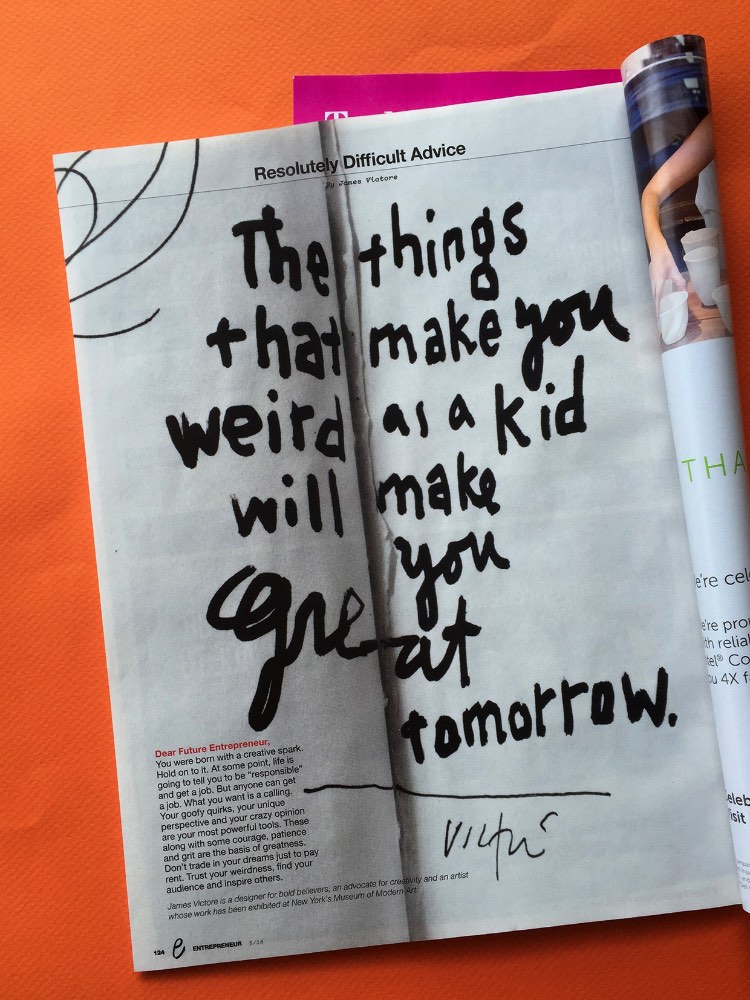 Resolutely Difficult Advice
By James Victore
The things
that make you
weird as a kid
will make
you
great
tomorrow.
Dear Future Entrepreneur,
You were born with a creative spark.
Hold on to it. At some point, life is
going to tell you to be "responsible"
and get a job. But anyone can get
a job. What you want is a calling.
Your goofy quirks, your unique
perspective and your crazy opinion
are your most powerful tools. These
along with some courage, patience
and grit are the basis of greatness.
Don't trade in your dreams just to pay
rent. Trust your weirdness, find your
audience and inspire others.
Victore
James Victore is a designer for bold believers, an advocate for creativity and an artist
whose work has been exhibited at New York's Museum of Modern Art.
124 e ENTREPRENEUR 5/16
THA
e're cel
e're pro
th relia
tel® Co
ou 4X f
eleb
isit